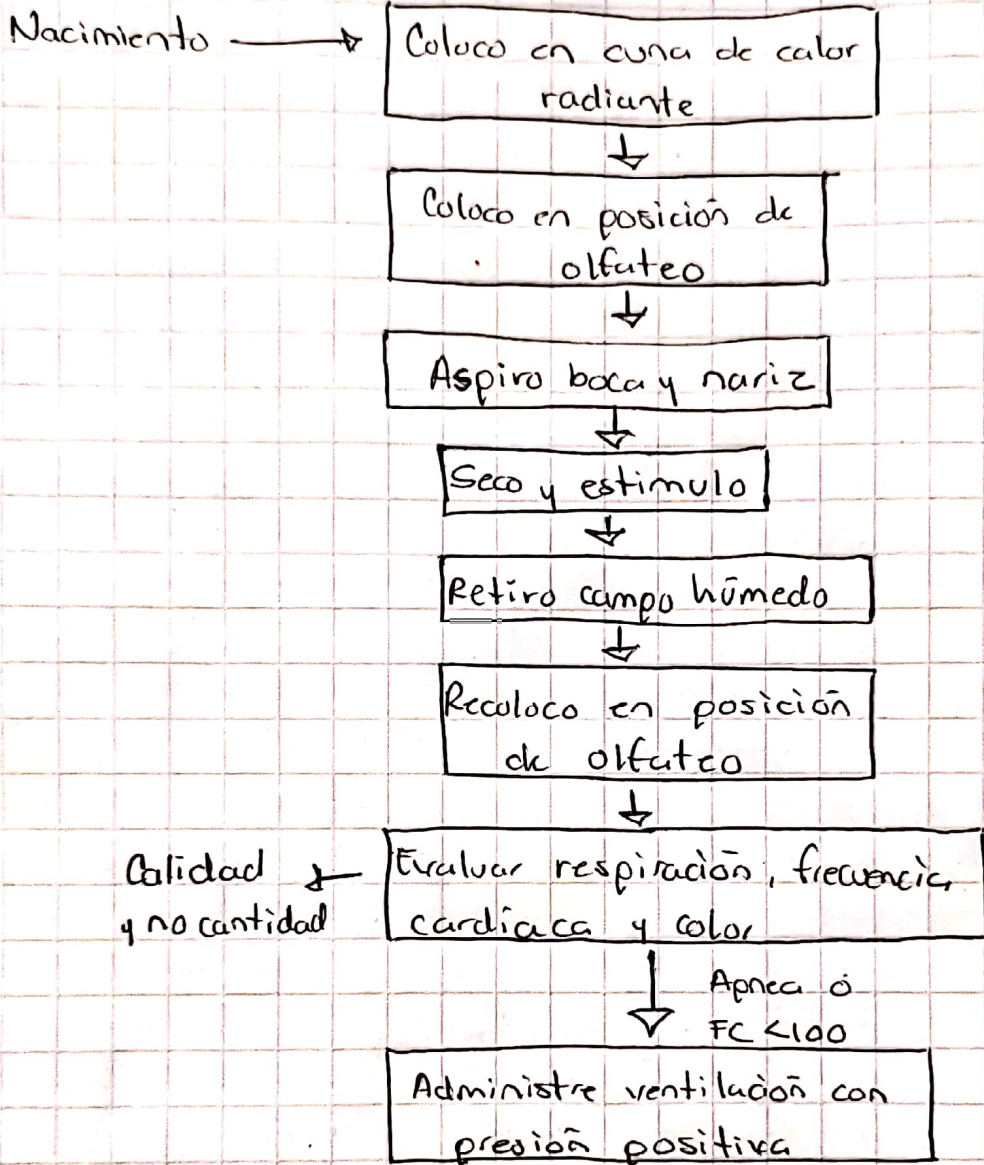 Nacimiento
Coloco en cuna de calor
radiante
Coloco en posición de
olfateo
Aspiro boca y nariz
Seco y estimulo
Retiro campo húmedo
Recoloco en posición
de olfateo
Evaluar respiración, frecuencia
cardíaca y color
Calidad
y no cantidad
Apnea ó
FC <100
Administre ventilación con
presión positiva